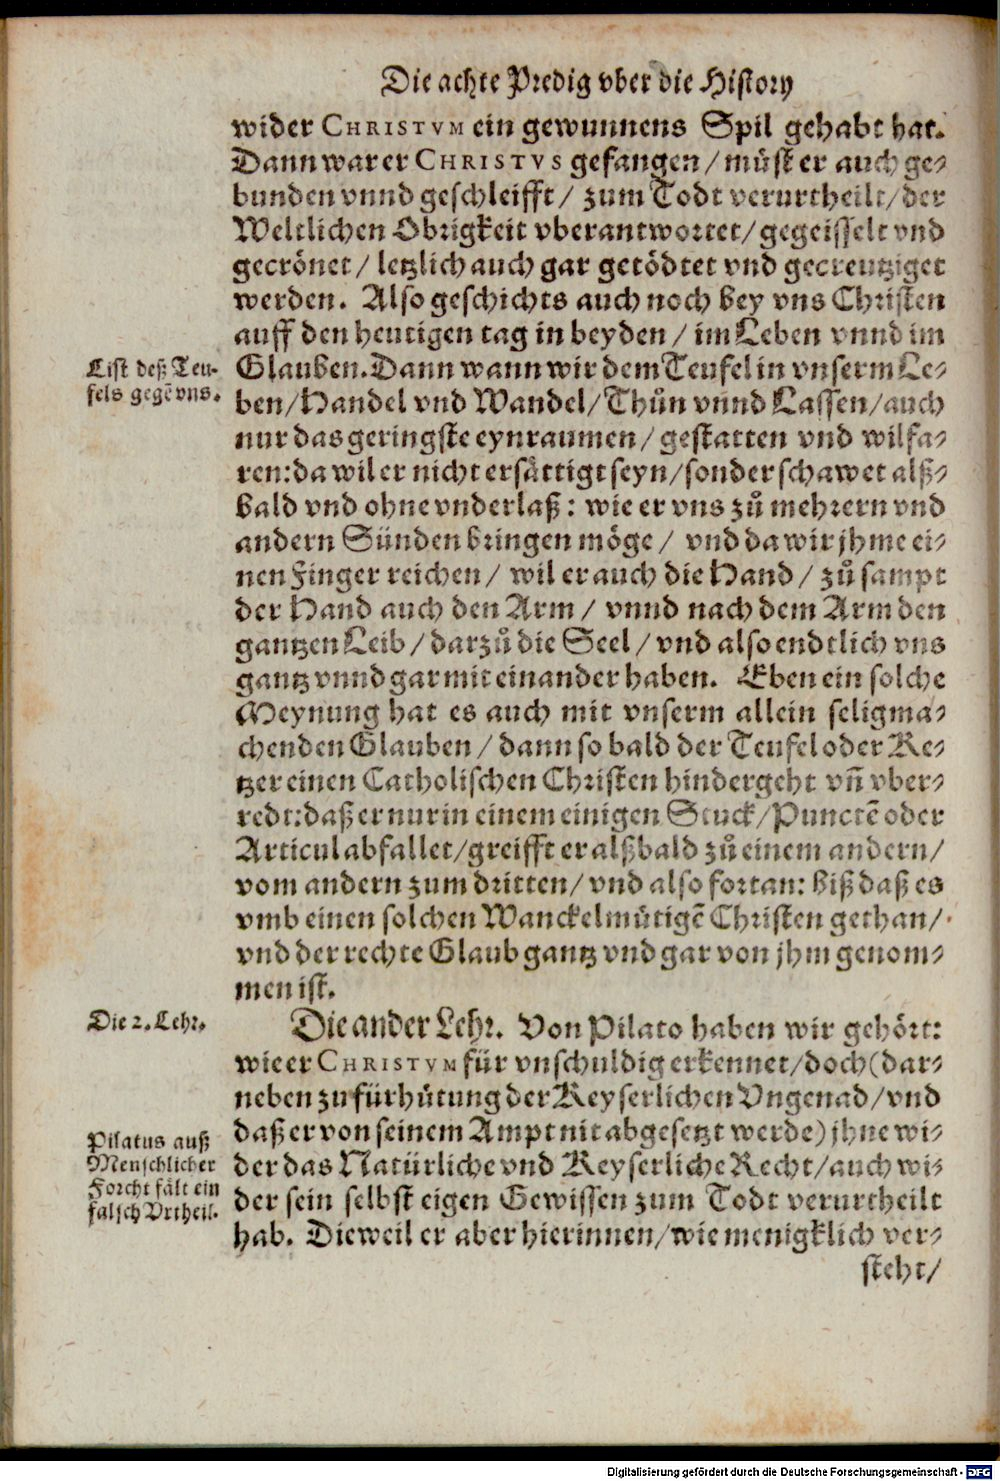 Die achte Predig vber die History
wider CHRISTVM ein gewunnens Spil gehabt hat.
Dann war er CHRISTVS gefangen / müst er auch ge-
bunden vnnd geschleifft / zum Todt verurtheilt / der
Weltlichen Obrigkeit vberantwortet / gegeisselt vnd
gecrönet / letzlich auch gar getödtet vnd gecreutziget
werden. Also geschichts auch noch bey vns Christen
auff den heutigen tag in beyden / im Leben vnnd im
List deß Teu-
fels gegẽ vns.
Glauben. Dann wann wir dem Teufel in vnserm Le-
ben / Handel vnd Wandel / Thůn vnnd Lassen / auch
nur das geringste eynraumen / gestatten vnd wilfa-
ren: da wil er nicht ersättigt seyn / sonder schawet alß-
bald vnd ohne vnderlaß: wie er vns zů mehrern vnd
andern Sünden bringen möge / vnd da wir jhme ei-
nen Finger reichen / wil er auch die Hand / zů sampt
der Hand auch den Arm / vnnd nach dem Arm den
gantzen Leib / darzů die Seel / vnd also endtlich vns
gantz vnnd gar mit einander haben. Eben ein solche
Meynung hat es auch mit vnserm allein seligma-
chenden Glauben / dann so bald der Teufel oder Ke-
tzer einen Catholischen Christen hindergeht vñ vber-
redt: daß er nur in einem einigen Stuck / Punctẽ oder
Articul abfallet / greifft er alßbald zů einem andern /
vom andern zum dritten / vnd also fortan: biß daß es
vmb einen solchen Wanckelmütigẽ Christen gethan /
vnd der rechte Glaub gantz vnd gar von jhm genom-
men ist.
Die 2. Lehr.
Die ander Lehr. Von Pilato haben wir gehört:
wie er CHRISTVM für vnschuldig erkennet / doch (dar-
neben zu fürhütung der Keyserlichen Vngenad / vnd
Pilatus auß
Menschlicher
Forcht fält ein
falsch Vrtheil.
daß er von seinem Ampt nit abgesetzt werde) jhne wi-
der das Natürliche vnd Keyserliche Recht / auch wi-
der sein selbst eigen Gewissen zum Todt verurtheilt
hab. Dieweil er aber hierinnen / wie menigklich ver-
steht /
Digitalisierung gefördert durch die Deutsche Forschungsgemeinschaft - DFG